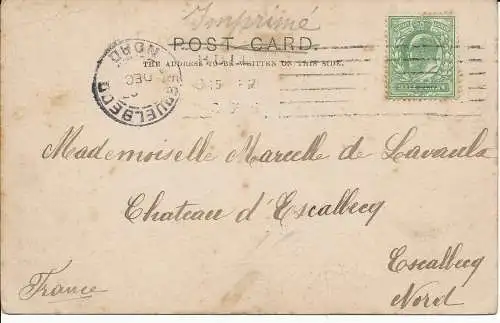 Imprimé
POST CARD.
THE ADDRESS TO BE WRITTEN ON THIS SIDE.
ESQUELBECQ
NORD
DEC
Mademoiselle Marcelle de Lavaulx
Chateau d'Escalbecq
Escalbecq
Nord
France